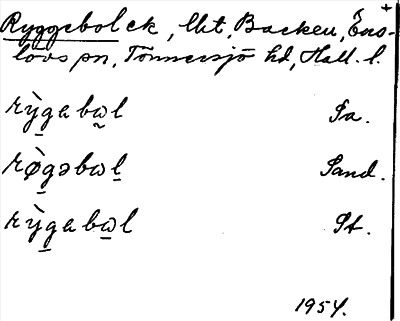 Ryggebol ck, lht, Backen, Ens-
lövs sn, Tönnersjö hd, Hall. l.
rỳga bωl Sa.
rø̀gəbωl Sand.
rỳga bωl St.
1954.